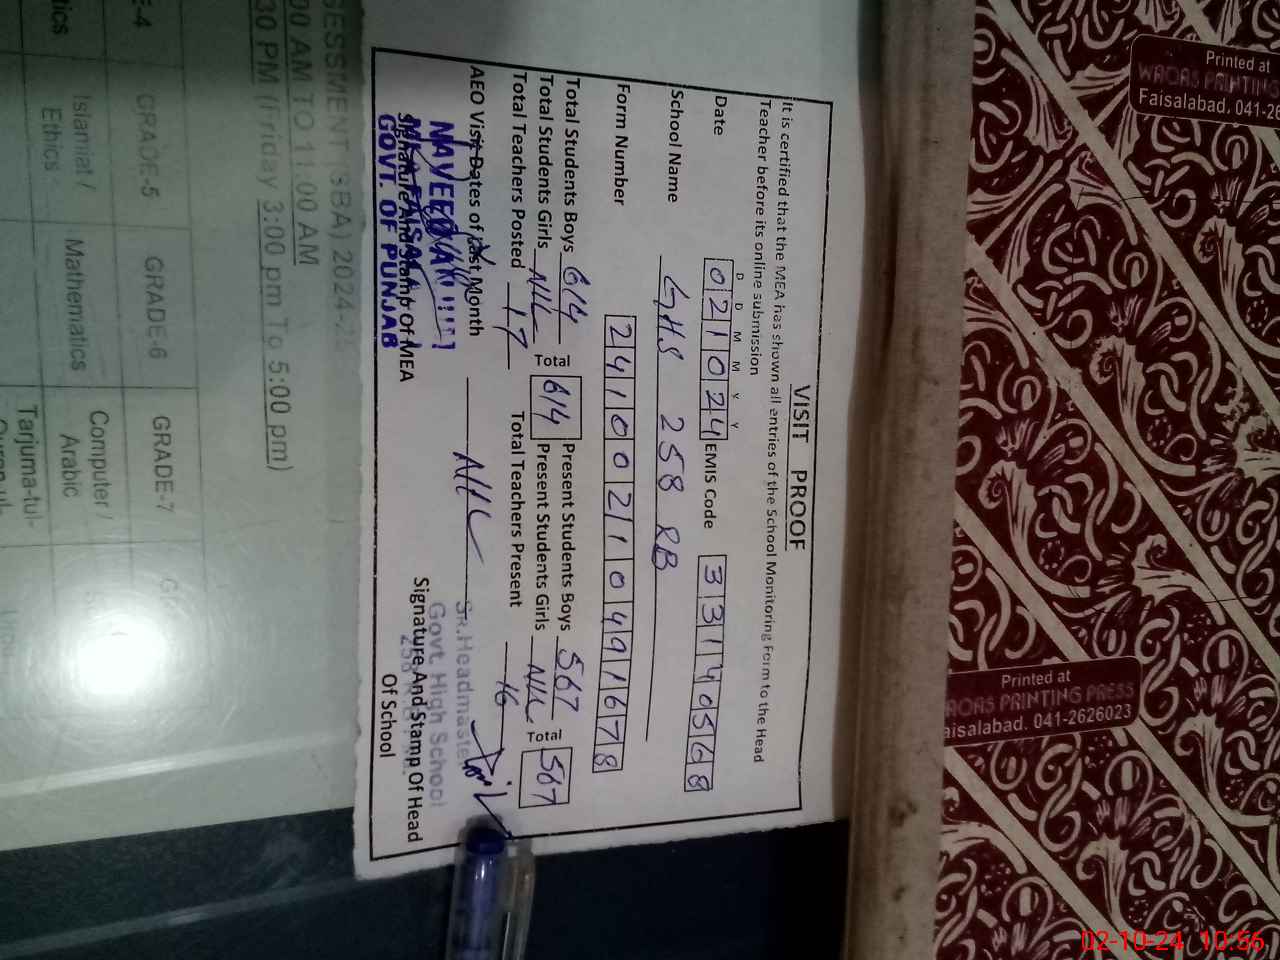 VISIT PROOF
It is certified that the MEA has shown all entries of the School Monitoring Form to the Head
Teacher before its online submission
D D M M Y Y
Date 021024 EMIS Code 33140568
School Name GHS 258 RB
Form Number 2410021049 1678
Total Students Boys 614 Total 614 Present Students Boys 567 Total 567
Total Students Girls NIL Present Students Girls NIL
Total Teachers Posted 17 Total Teachers Present 16
AEO Visit Dates of Last Month NIL
NAVEED
Signature And Stamp Of MEA
GOVT. OF PUNJAB
Sr. Headmaster
Govt. High School
Signature And Stamp Of Head
Of School
SESSMENT (SBA) 2024-
00 AM TO 11:00 AM
30 PM (Friday 3:00 pm To 5:00 pm)
E-4 GRADE-5 GRADE-6 GRADE-7
tics Islamiat / Ethics Mathematics Computer / Arabic
Tarjuma-tul-
Printed at
WAQAS PRINTING
Faisalabad. 041-26
Printed at
AQAS PRINTING PRESS
aisalabad. 041-2626023
02-10-24 10:56